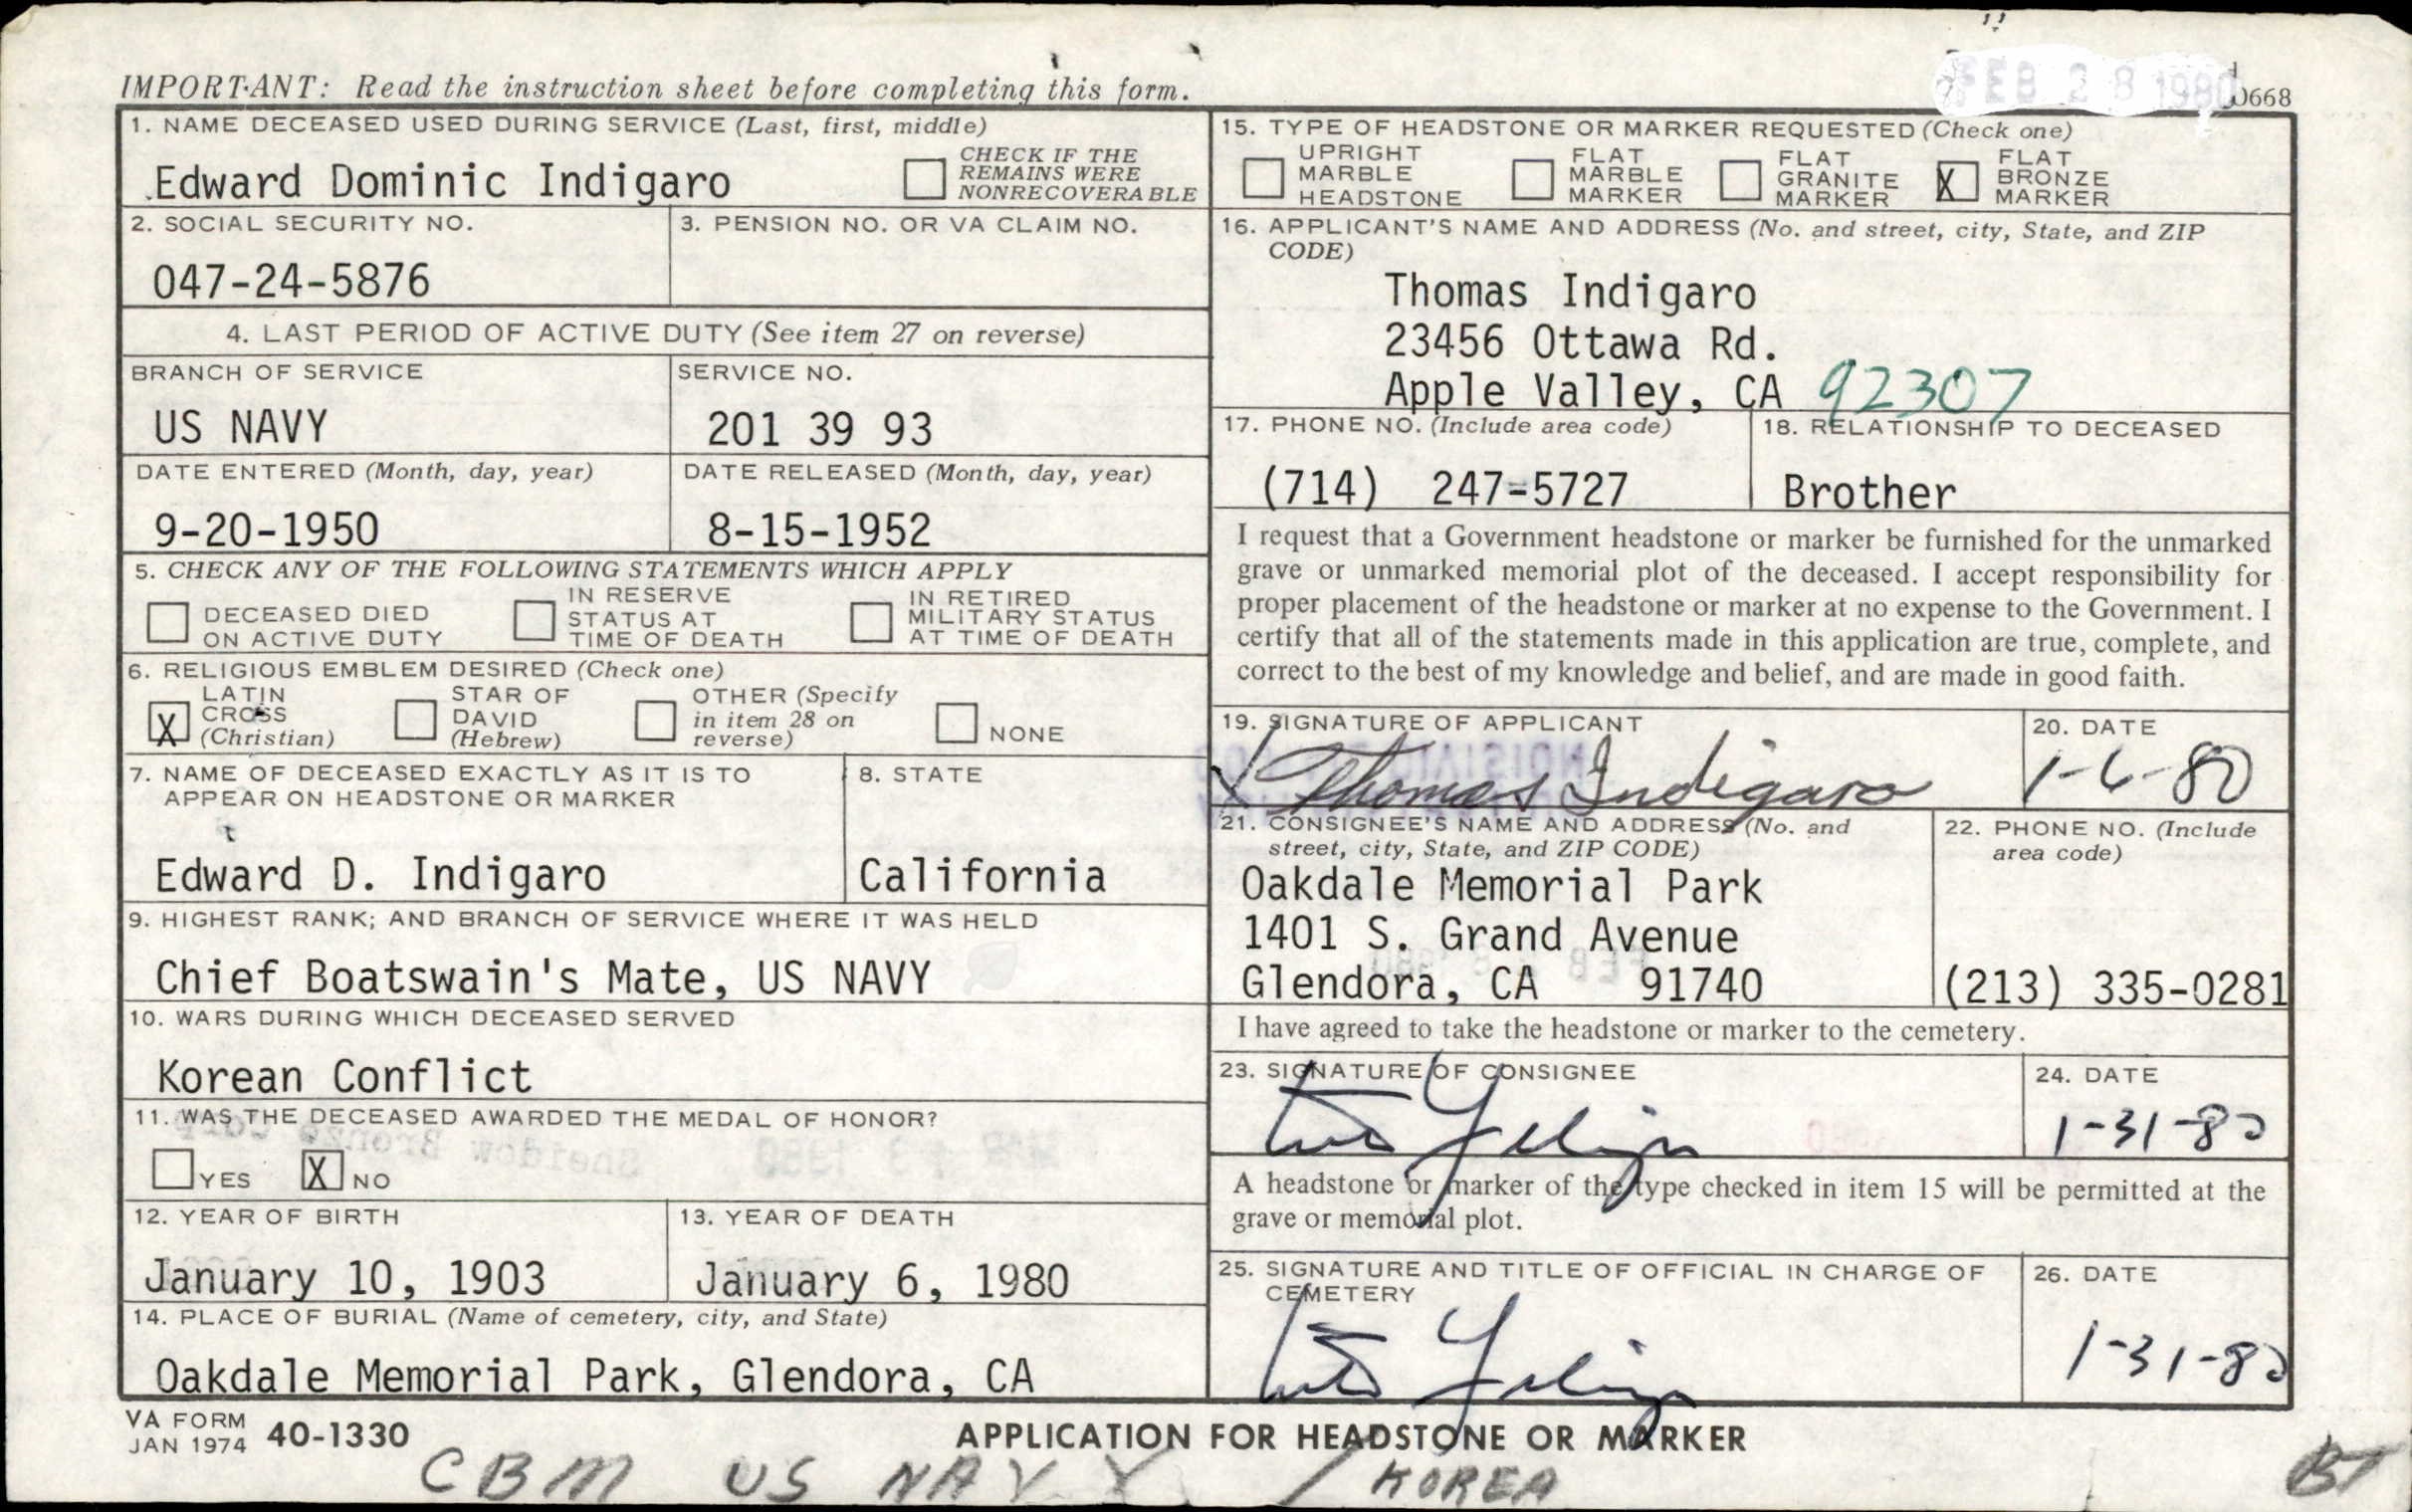 FEB 28 1980
0668
IMPORTANT: Read the instruction sheet before completing this form.
1. NAME DECEASED USED DURING SERVICE (Last, first, middle)
Edward Dominic Indigaro
CHECK IF THE
REMAINS WERE
NONRECOVERABLE
2. SOCIAL SECURITY NO.
047-24-5876
3. PENSION NO. OR VA CLAIM NO.
4. LAST PERIOD OF ACTIVE DUTY (See item 27 on reverse)
BRANCH OF SERVICE
US NAVY
SERVICE NO.
201 39 93
DATE ENTERED (Month, day, year)
9-20-1950
DATE RELEASED (Month, day, year)
8-15-1952
5. CHECK ANY OF THE FOLLOWING STATEMENTS WHICH APPLY
DECEASED DIED
ON ACTIVE DUTY
IN RESERVE
STATUS AT
TIME OF DEATH
IN RETIRED
MILITARY STATUS
AT TIME OF DEATH
6. RELIGIOUS EMBLEM DESIRED (Check one)
X
LATIN
CROSS
(Christian)
STAR OF
DAVID
(Hebrew)
OTHER (Specify
in item 28 on
reverse)
NONE
7. NAME OF DECEASED EXACTLY AS IT IS TO
APPEAR ON HEADSTONE OR MARKER
Edward D. Indigaro
8. STATE
California
9. HIGHEST RANK; AND BRANCH OF SERVICE WHERE IT WAS HELD
Chief Boatswain's Mate, US NAVY
10. WARS DURING WHICH DECEASED SERVED
Korean Conflict
11. WAS THE DECEASED AWARDED THE MEDAL OF HONOR?
YES X NO
12. YEAR OF BIRTH
January 10, 1903
13. YEAR OF DEATH
January 6, 1980
14. PLACE OF BURIAL (Name of cemetery, city, and State)
Oakdale Memorial Park, Glendora, CA
15. TYPE OF HEADSTONE OR MARKER REQUESTED (Check one)
UPRIGHT
MARBLE
HEADSTONE
FLAT
MARBLE
MARKER
FLAT
GRANITE
MARKER
X
FLAT
BRONZE
MARKER
16. APPLICANT'S NAME AND ADDRESS (No. and street, city, State, and ZIP
CODE)
Thomas Indigaro
23456 Ottawa Rd.
Apple Valley, CA 92307
17. PHONE NO. (Include area code)
(714) 247-5727
18. RELATIONSHIP TO DECEASED
Brother
I request that a Government headstone or marker be furnished for the unmarked
grave or unmarked memorial plot of the deceased. I accept responsibility for
proper placement of the headstone or marker at no expense to the Government. I
certify that all of the statements made in this application are true, complete, and
correct to the best of my knowledge and belief, and are made in good faith.
19. SIGNATURE OF APPLICANT
Thomas Indigaro
20. DATE
1-6-80
21. CONSIGNEE'S NAME AND ADDRESS (No. and
street, city, State, and ZIP CODE)
Oakdale Memorial Park
1401 S. Grand Avenue
Glendora, CA 91740
22. PHONE NO. (Include
area code)
(213) 335-0281
I have agreed to take the headstone or marker to the cemetery.
23. SIGNATURE OF CONSIGNEE
24. DATE
1-31-80
A headstone or marker of the type checked in item 15 will be permitted at the
grave or memorial plot.
25. SIGNATURE AND TITLE OF OFFICIAL IN CHARGE OF
CEMETERY
26. DATE
1-31-80
VA FORM
JAN 1974 40-1330
APPLICATION FOR HEADSTONE OR MARKER
CBM US NAVY / KOREA
BT